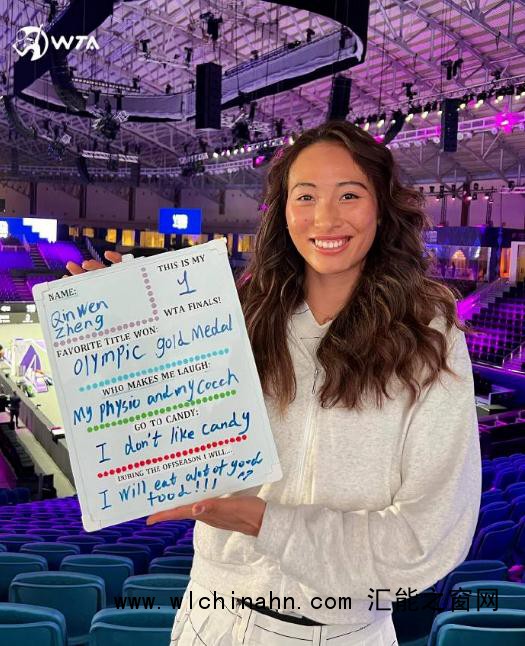 WTA
NAME:
Qinwen
Zheng
THIS IS MY
1
WTA FINALS!
FAVORITE TITLE WON:
Olympic gold Medal
WHO MAKES ME LAUGH:
My physio and my coach
GO TO CANDY:
I don't like candy
DURING THE OFFSEASON I WILL...
I Will eat alot of good
food!!!
www.wlchinahn.com 汇能之窗网